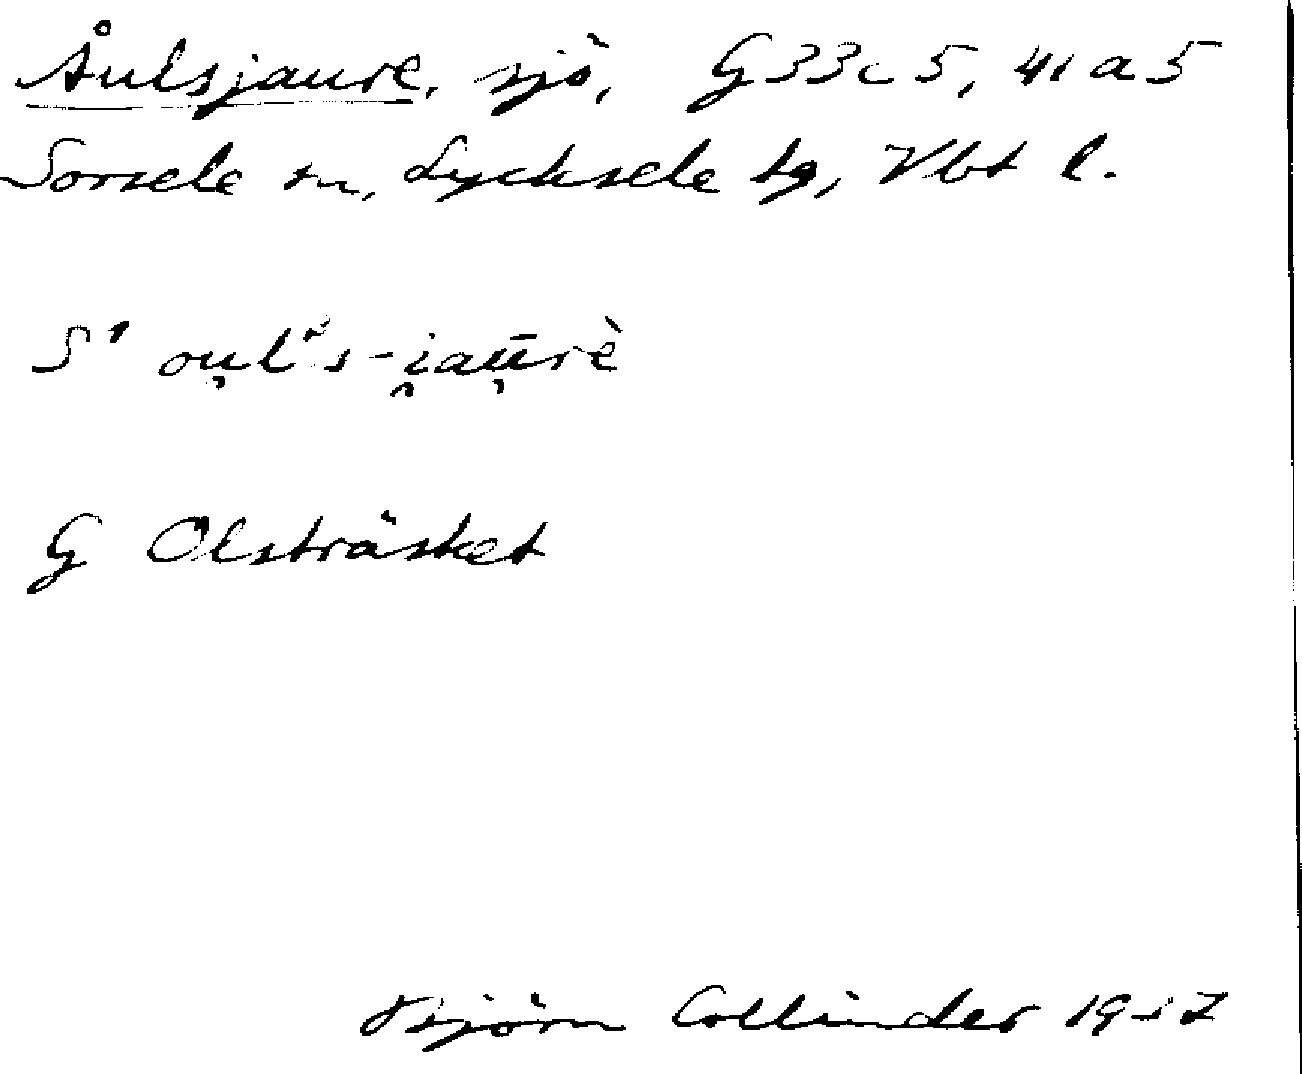 Åulsjaure, sjö, G 33c5, 41a5
Sorsele sn, Lycksele tg, Vbt l.
S' ou̯l's-i̯au̯̅rè
G Olsträsket
Björn Collinder 1957